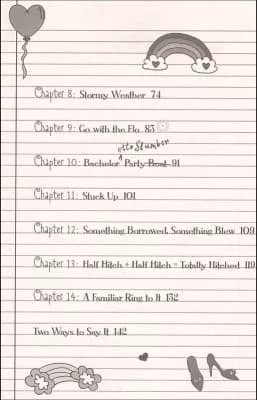 Chapter 8: Stormy Weather 74
Chapter 9: Go with the Flo 83
ette Slumber
Chapter 10: Bachelor ^ Party Boat 91
Chapter 11: Stuck Up 101
Chapter 12: Something Borrowed, Something Blew 109
Chapter 13: Half Hitch + Half Hitch = Totally Hitched 119
Chapter 14: A Familiar Ring to It 132
Two Ways to Say It 142